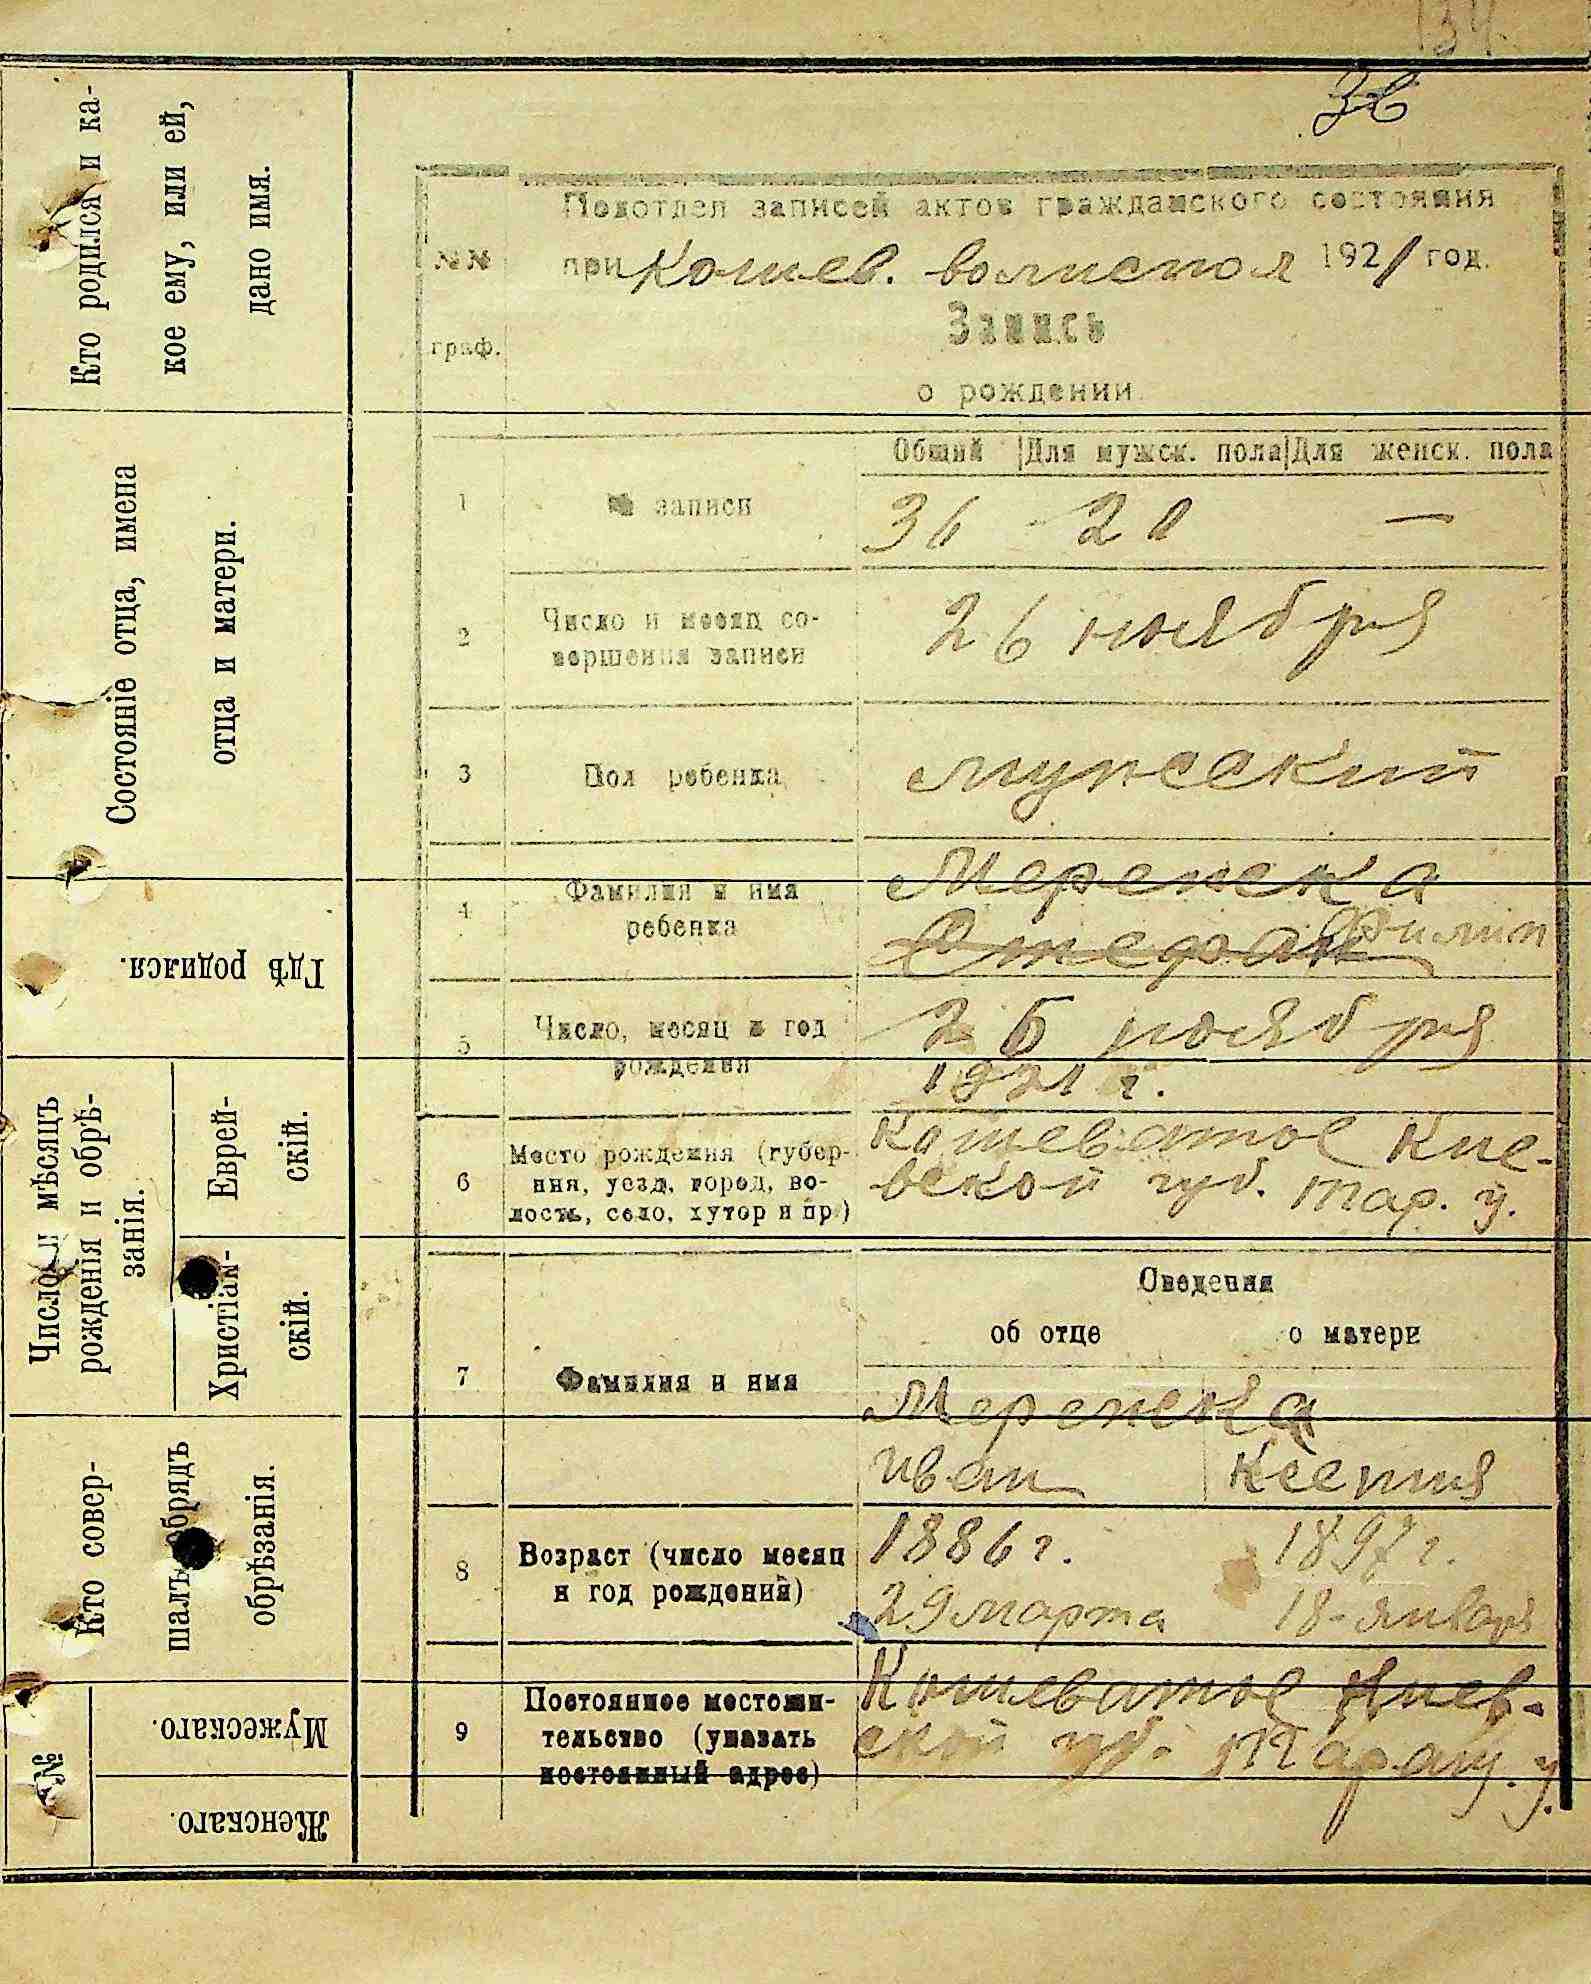 134.
36
Кто родился и ка-
кое ему, или ей,
дано имя.
Состояніе отца, имена
отца и матери.
Гдѣ родился.
Число и мѣсяцъ
рожденія и обрѣ-
занія.
Еврей-
скій.
Христіан-
скій.
Кто совер-
шалъ обрядъ
обрѣзанія.
№
Мужескаго.
Женскаго.
Подотдел записей актов гражданского состояния
№№ при Кошев. волиспол 1921 год.
Запись
граф.
о рождении
Общий Для мужск. пола Для женск. пола
1 № записи 36 20 —
2 Число и месяц со-
вершения записи 26 ноября
3 Пол ребенка мужеский
4 Фамилия и имя
ребенка
Меренека
Стефан Филип
5 Число, месяц и год
рождения
25 ноября
1921 г.
6 Место рождения (губер-
ния, уезд, город, во-
лость, село, хутор и пр.)
Кошеватое Кие-
вской губ. Тар. у.
Сведения
об отце о матери
7 Фамилия и имя
Меренека
Иван Ксения
8 Возраст (число месяц
и год рождения)
1886 г. 1897 г.
29 марта 18-января
9 Постоянное местожи-
тельство (указать
постоянный адрес)
Кошеватое Киев-
ской губ. Таращ. у.